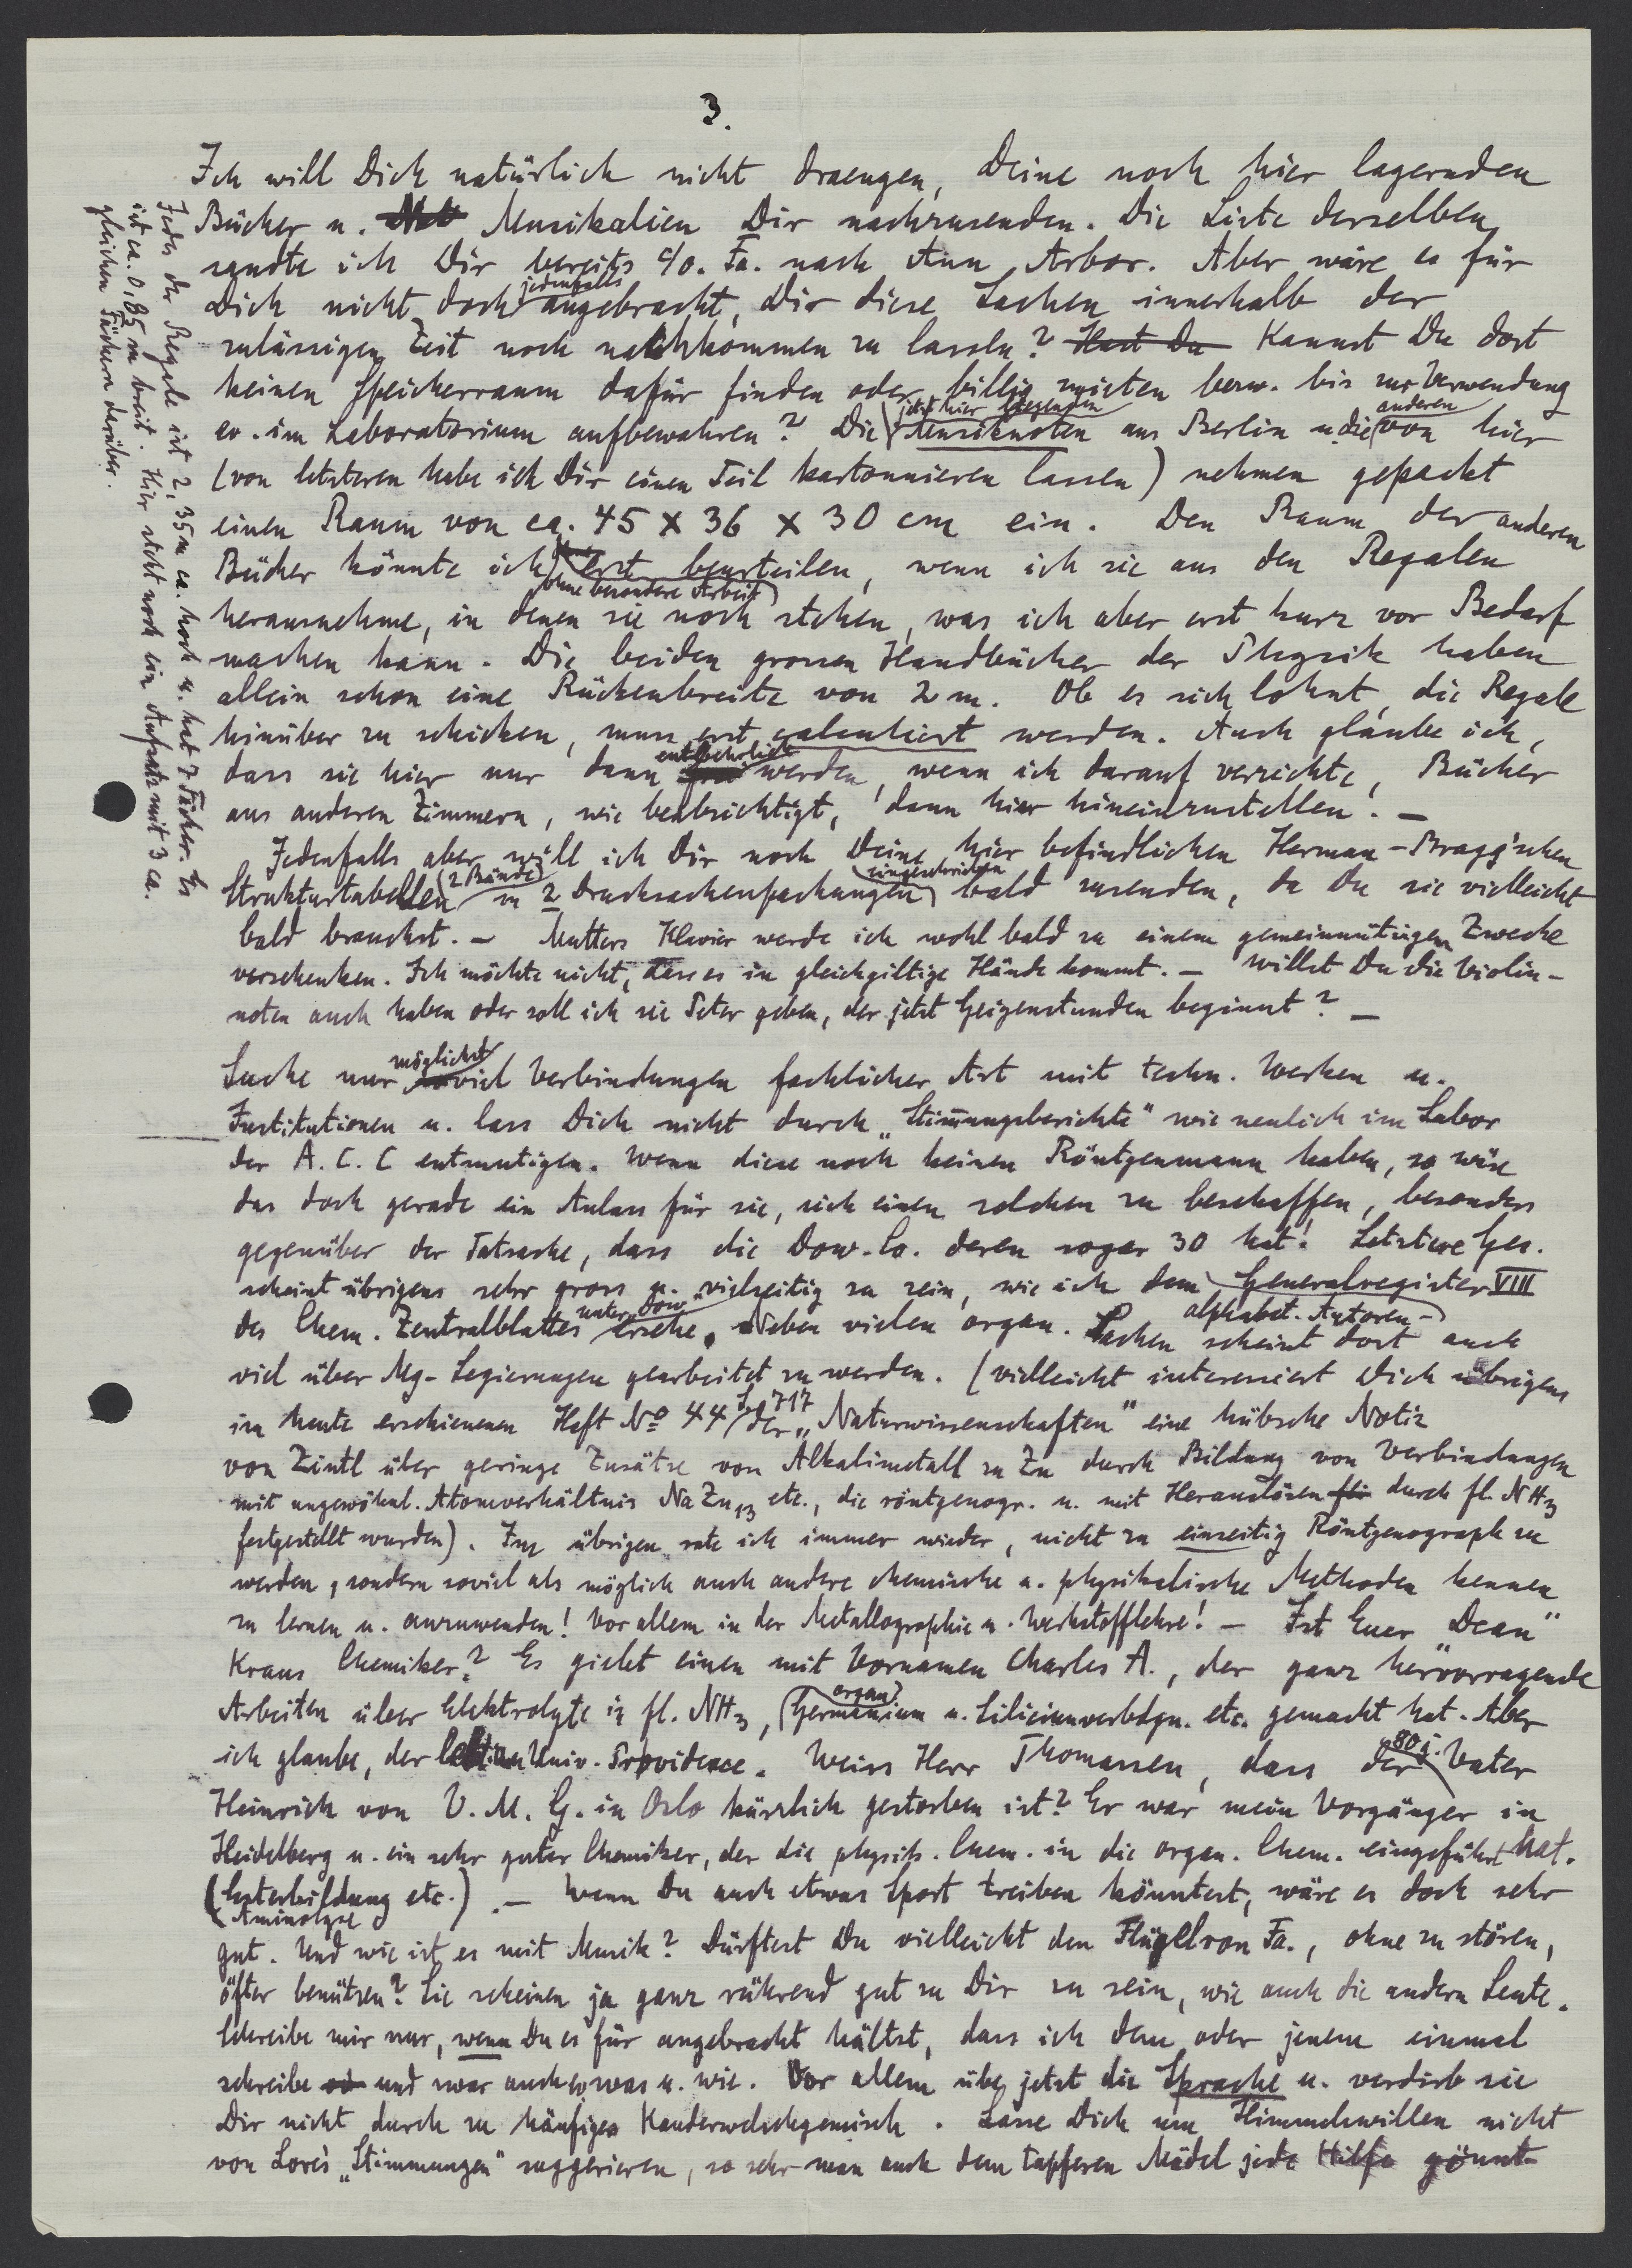 3.
Ich will Dich natürlich nicht draengen, Deine noch hier lagernden
Bücher u. Musikalien Dir nachzusenden. Die Liste derselben
sandte ich Dir bereits c/o. Fa. nach Ann Arbor. Aber wäre es für
Dich nicht doch jedenfalls angebracht, Dir diese Sachen innerhalb der
zulässigen Zeit noch nachkommen zu lassen? Hast Du Kannst Du dort
keinen Speicherraum dafür finden oder billig mieten bezw. bis zur Verwendung
ev. im Laboratorium aufbewahren? Die (jetzt hier liegenden Musiknoten aus Berlin u. die anderen von hier
(von letzteren habe ich Dir einen Teil kartonnieren lassen) nehmen gepackt
einen Raum von ca. 45 x 36 x 30 cm ein. Den Raum der anderen
Bücher könnte ich (ohne besondere Arbeit) erst beurteilen, wenn ich sie aus den Regalen
herausnehme, in denen sie noch stehen, was ich aber erst kurz vor Bedarf
machen kann. Die beiden grossen Handbücher der Physik haben
allein schon eine Rückenbreite von 2 m. Ob es sich lohnt, die Regale
hinüber zu schicken, muss erst calculiert werden. Auch glaube ich,
dass sie hier nur dann entbehrlich werden, wenn ich darauf verzichte, Bücher
aus anderen Zimmern, wie beabsichtigt, dann hier hineinzustellen. –
Jedenfalls aber will ich Dir noch Deine hier befindlichen Herman-Bragg'schen
Strukturtabellen (2 Bände) in 2 Drucksachenpackungen (eingeschrieben) bald zusenden, da Du sie vielleicht
bald brauchst. – Mutters Klavier werde ich wohl bald zu einem gemeinnützigen Zwecke
verschenken. Ich möchte nicht, dass es in gleichgiltige Hände kommt. – Willst Du die Violin-
noten auch haben oder soll ich sie Peter geben, der jetzt Geigenstunden beginnt? –
Suche nur möglichst viel Verbindungen fachlicher Art mit techn. Werken u.
Institutionen u. lass Dich nicht durch „Stim̅ungsberichte" wie neulich im Labor
der A. C. C entmutigen. Wenn diese noch keinen Röntgenmann haben, so wäre
das doch gerade ein Anlass für sie, sich einen solchen zu beschaffen, besonders
gegenüber der Tatsache, dass die Dow. Co. deren sogar 30 hat! Letztere Ges.
scheint übrigens sehr gross u. vielseitig zu sein, wie ich dem (alphabet. Autoren-) Generalregister VIII
des Chem. Zentralblattes unter „Dow" ersehe. Neben vielen organ. Sachen scheint dort auch
viel über Mg-Legierungen gearbeitet zu werden. (Vielleicht interessiert Dich übrigens
im heute erschienenen Heft No 44 S. 717 der „Naturwissenschaften" eine hübsche Notiz
von Zintl über geringe Zusätze von Alkalimetall zu Zn durch Bildung von Verbindungen
mit ungewöhnl. Atomverhältnis NaZn13 etc., die röntgenogr. u. mit Herauslösen durch fl. NH3
festgestellt wurden). Im übrigen rate ich immer wieder, nicht zu einseitig Röntgenograph zu
werden, sondern soviel als möglich auch andere chemische u. physikalische Methoden kennen
zu lernen u. anzuwenden! Vor allem in der Metallographie u. Werkstofflehre! – Ist Euer „Dean"
Kraus Chemiker? Es giebt einen mit Vornamen Charles A., der ganz hervorragende
Arbeiten über Elektrolyte in fl. NH3, (organ.) Germanium u. Siliciumverbdgn. etc. gemacht hat. Aber
ich glaube, der Univ. Providence. Weiss Herr Thomassen, dass der 80 j. Vater
Heinrich von V. M. G. in Oslo kürzlich gestorben ist? Er war mein Vorgänger in
Heidelberg u. ein sehr guter Chemiker, der die physik. Chem. in die organ. Chem. eingeführt hat.
(Esterbildung etc.) Aminolyse. – Wenn Du auch etwas Sport treiben könntest, wäre es doch sehr
gut. Und wie ist es mit Musik? Dürftest Du vielleicht den Flügel von Fa., ohne zu stören,
öfter benützen? Sie scheinen ja ganz rührend gut zu Dir zu sein, wie auch die andern Leute.
Schreibe mir nur, wenn Du es für angebracht hältst, dass ich dem oder jenem einmal
schreibe und zwar auch was u. wie. Vor allem übe jetzt die Sprache u. verdirb sie
Dir nicht durch zu häufiges Kauderwelschgemisch. Lasse Dich um Himmelswillen nicht
von Lore's „Stimmungen" suggerieren, so sehr man auch dem tapferen Mädel jede Hilfe gönnt
Jedes der Regale ist 2,35 m ca. hoch u. hat 7 Fächer. Es
ist ca. 0,85 m breit. Hier steht noch ein Aufsatz mit 3 ca.
gleichen Fächern darüber.